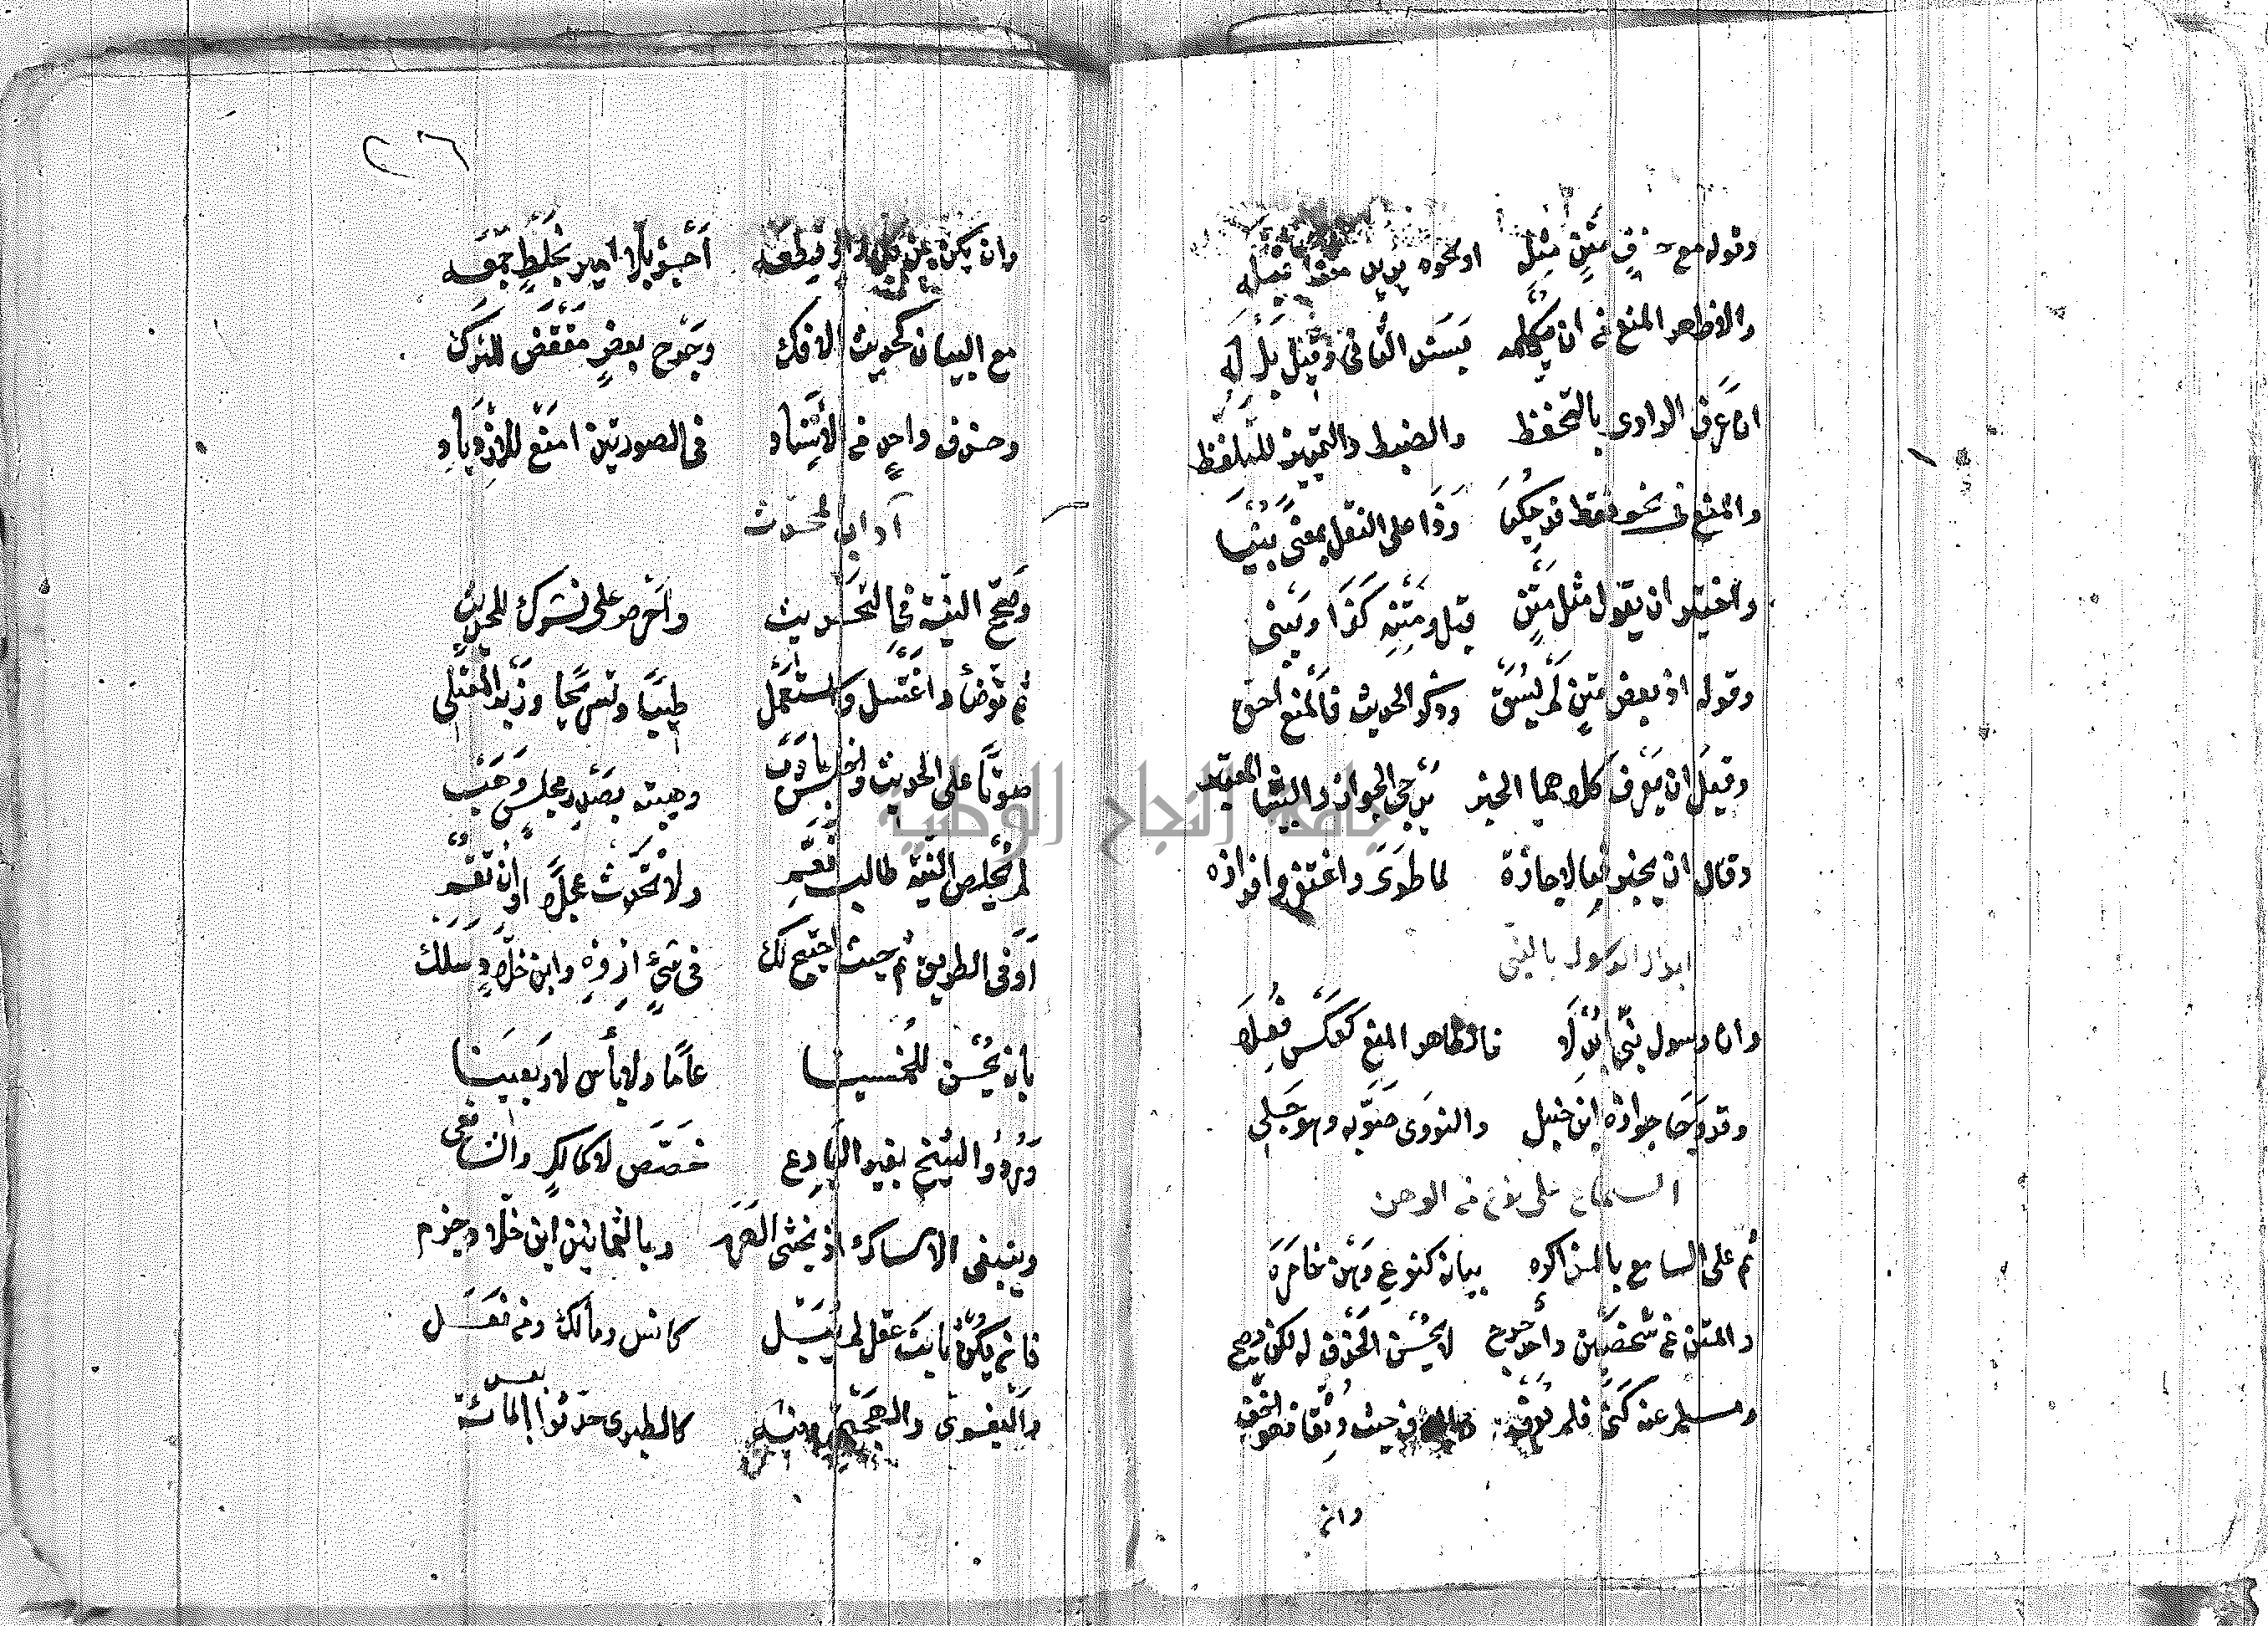 وقوله مع حذف متن مثل او نحوه يريد متنا قبله
والاظهر المنع من ان يكمله بسند الثاني وقيل بل له
ان عرف الراوي بالتحفظ والضبط والتمييز للتلفظ
والمنع في نحو فقط قد حكيا وذا على النقل بمعنى بنيا
واختير ان يقول مثل متن قبل ومتنه كذا ويبني
وقوله اذ بعض متن لم يسق وذكر الحديث فالمنع احق
وقيل ان يعرف كلاهما الخبر يرجى الجواز والبيان المعتبر
وقال ان يجز فبالاجازة لما طوى واغتفروا افرازه
ابدال الرسول بالنبي
وان رسول بنبي ابدلا فالظاهر المنع كعكس فعلا
وقد رجا جوازه ابن حنبل والنووي صوبه وهو جلي
السماع على نوع من الوهن
ثم على السامع بالمذاكره بيان كنوع وهن خامره
والمتن عن شخصين واحد جرح لا يحسن الحذف له لكن يصح
ومسلم عنه كنى فلم يوف والحذف حيث وثقا فهو اخف
وان
٢٦
وان يكن عن كل راو قطعه اجز بلا ميز بخلط جمعه
مع البيان كحديث الافك وجرح بعض مقتض للترك
وحذف واحد من الاسناد في الصورتين امنع للازدياد
آداب المحدث
وصحح النية في التحديث واحرص على نشرك للحديث
ثم توضأ واغتسل واستعمل طيبا وتسريحا وزبر المعتلي
صوتا على الحديث واجلس بادب وهيبة بصدر مجلس وهب
لم يخلص النية طالب فعم ولا تحدث عجلا او ان تقم
او في الطريق ثم حيث احتيج لك في شيء اروه وابن خلاد سلك
بانه يحسن للخمسينا عاما ولا بأس لاربعينا
ورد والشيخ بغير البارع خصص لا كمالك والشافعي
وينبغي الامساك اذ يخشى الهرم وبالثمانين ابن خلاد جزم
فان يكن ثابت عقل لم يبل كانس ومالك ومن فعل
والبغوي والهجيمي وفئه كالطبري حدثوا بعد المائة
جامعة النجاح الوطنية